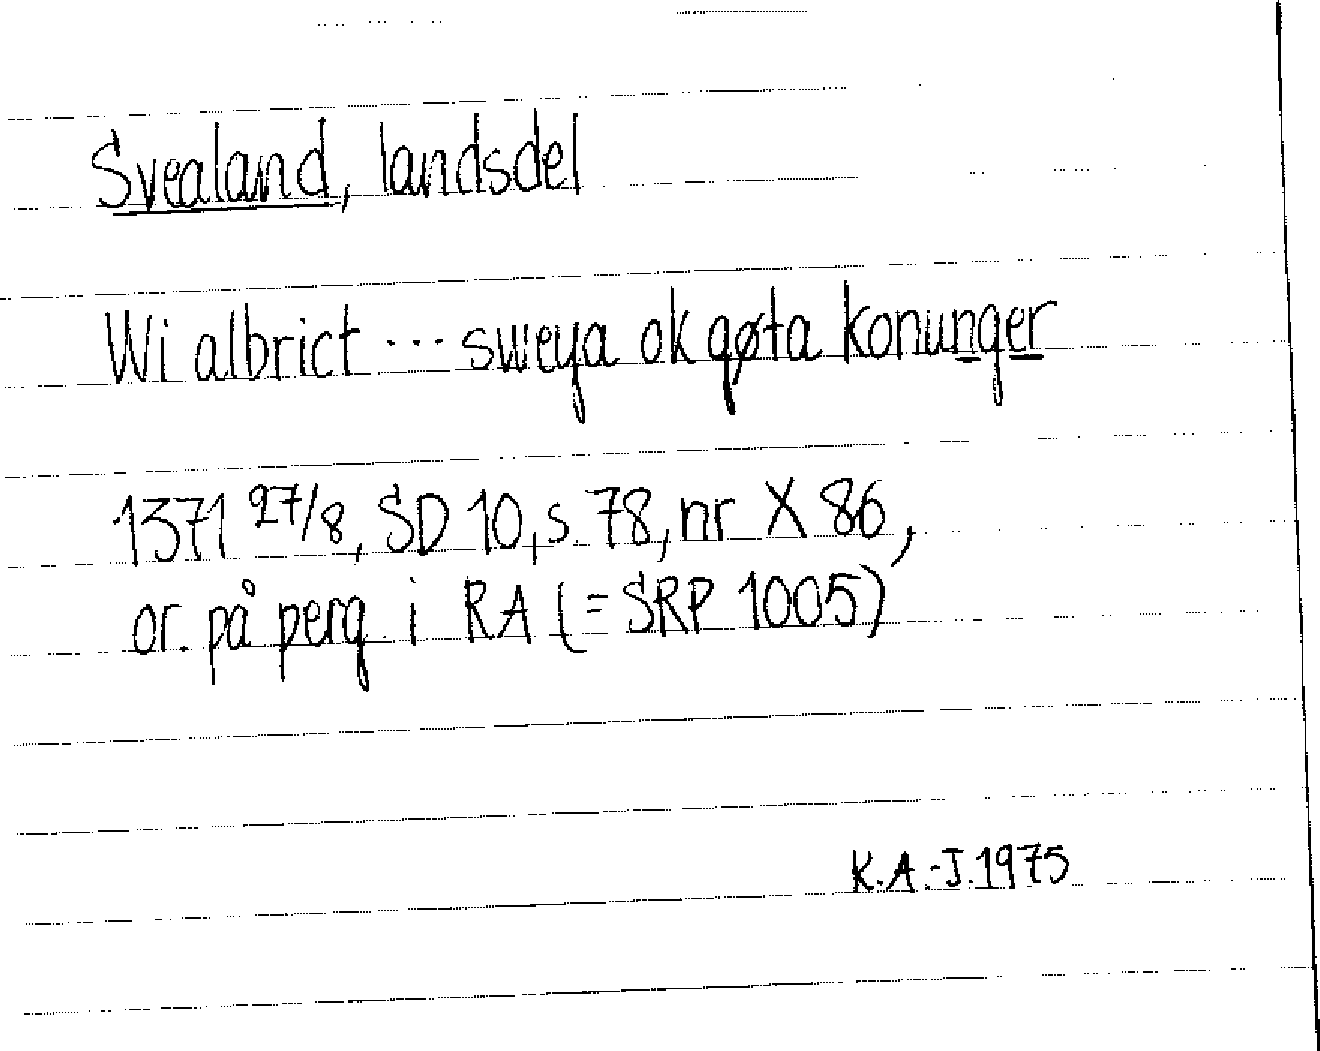 Svealand, landsdel
Wi albrict ... sweya ok gøta konunger
1371 27/8, SD 10, s. 78, nr X 86,
or. på perg. i RA (= SRP 1005)
K.A.-J. 1975